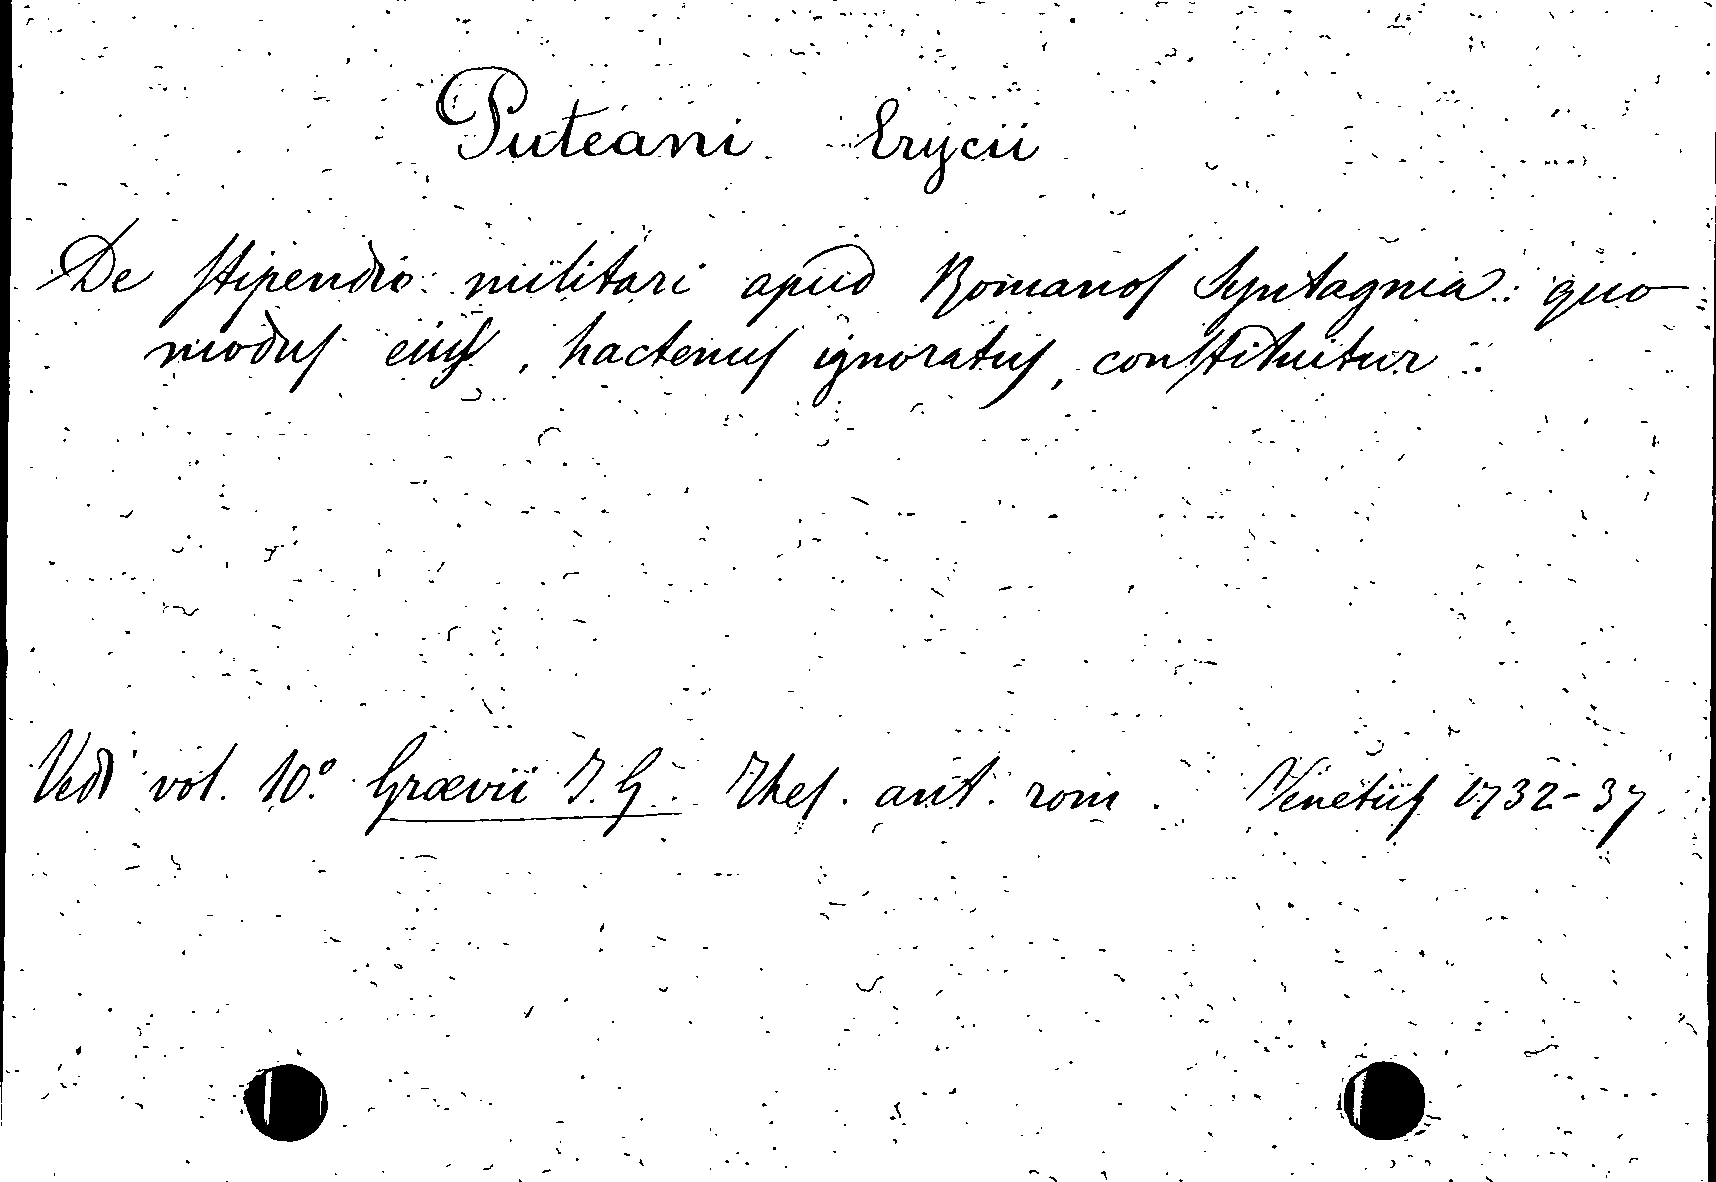 Puteani Erycii
De stipendio militari apud Romanos Syntagma: quo
modus eius, hactenus ignoratus, constituitur.
Vedi vol. 10.º Grævii J. G. Thes. ant. rom. Venetiis 1732-37